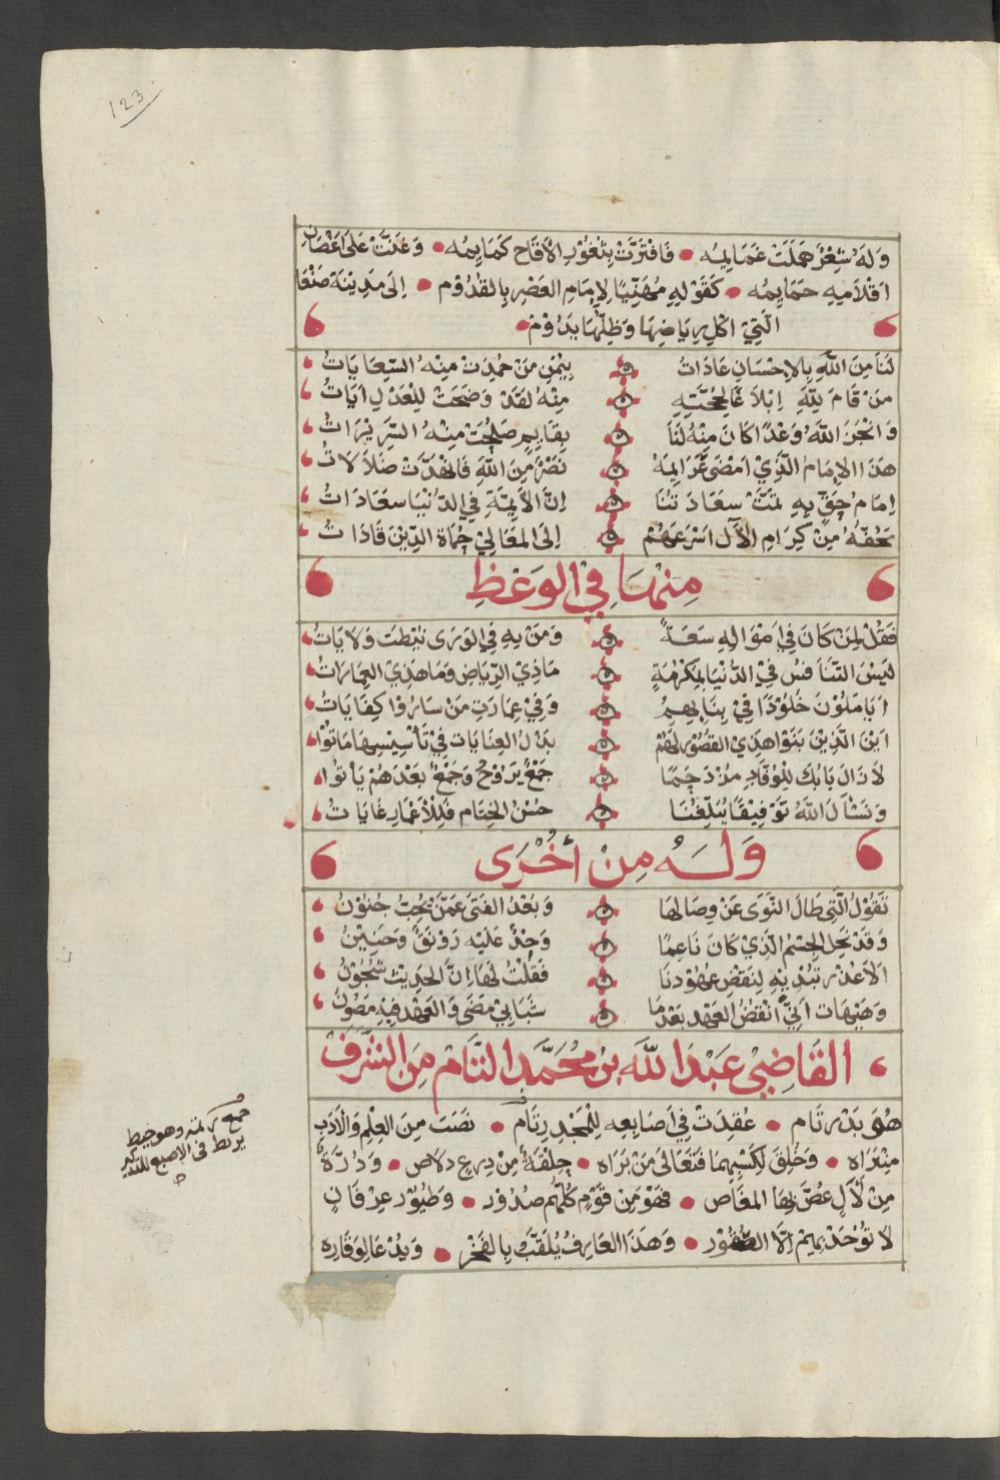 123
وَلَهُ شِعْرٌ هَمَلَتْ غَمَايِمُه • فَافْتَرَّتْ بِثُغُوْرِ الأَقَاحِ كَمَايِمُه • وَغَنَّتْ عَلَى أَغْصَانِ
اَقْلَامِهِ حَمَايِمُه • كَقَوْلِهِ مُهَنِّيًا لِإِمَامِ العَصْرِ بِالقُدُوْمِ • إِلَى مَدِيْنَة صَنْعَا
الَّتِيْ اُكُلُ رِيَاضِهَا وَظِلُّهَا يَدُوْمُ •
لَنَا مِنَ اللَّهِ بِالإِحْسَانِ عَادَاتُ بِيُمْنِ مَنْ حُمِدَتْ مِنْهُ السِّعَايَاتُ
مَنْ قَامَ لِلَّهِ إِبْلَاغًا لِحُجَّتِهِ مِنْهُ لَقَدْ وَضَحَتْ لِلْعَدْلِ اَيَاتُ
وَانْجَزَ اللَّهُ وَعْدًا كَانَ مِنْهُ لَنَا بِقَايِمٍ صَلُحَتْ مِنْهُ السَّرِيْرَاتُ
هَذَا الإِمَامُ الَّذِيْ اَمْضَى عَزَايِمَهُ نَصْرٌ مِنَ اللَّهِ فَانْهَدَّتْ ضَلَالَاتُ
اِمَامُ حَقٍّ بِهِ تَمَّتْ سَعَادَتُنَا اِنَّ الأَيِمَّةَ فِي الدُّنْيَا سَعَادَاتُ
تَحُفُّهُ مِنْ كِرَامِ الآلِ اَسْرَعُهُمْ اِلَى المَعَالِيْ حُمَاةُ الدِّيْنِ قَادَاتُ
مِنْهَا فِي الوَعْظِ
فَقُلْ لِمَنْ كَانَ فِي اَمْوَالِهِ سَعَةٌ وَمَنْ بِهِ فِي الوَرَى نِيْطَتْ وَلَايَاتُ
لَيْسَ التَّنَافُسُ فِيْ الدُّنْيَا بِمَكْرُمَةٍ مَا ذِي الرِّيَاضُ وَمَا هَذِيْ العِمَارَاتُ
اَيَامَلُوْنَ خُلُوْدًا فِيْ بِنَايِهِمُ وَفِيْ عِمَارَتِ مَنْ سَارُوْا كِفَايَاتُ
اَيْنَ الَّذِيْنَ بَنَوْا هَذِي القُصُوْرَ لَهُمْ بَذْلُ العِنَايَات فِيْ تَأْسِيْسِهَا مَاتُوْا
لَا زَالَ بَابُكَ لِلْوُفَّادِ مُزْدَحَمًا جَمْعٌ يَرُوْحُ وَجَمْعٌ بَعْدَهُمْ يَأْتُوا
وَنَسْأَلُ اللَّهَ تَوْفِيْقًا يُبَلِّغُنَا حُسْنَ الخِتَامِ فَلِلْأَعْمَارِ غَايَاتُ
وَلَهُ مِنْ أُخْرَى
تَقُوْلُ الَّتِي طَالَ النَّوَى عَنْ وِصَالِهَا وَبُعْدُ الفَتَى عَمَّنْ يُحِبُّ جُنُوْنُ
وَقَدْ نَحِلَ الجِسْمُ الَّذِيْ كَانَ نَاعِمًا وَجْدٌ عَلَيْهِ رَوْنَقٌ وَحَنِيْنُ
اَلَا عُذْرَ تُبْدِيْهِ لِنَقْضِ عُهُوْدِنَا فَقُلْتُ لَهَا اِنَّ الحَدِيْثَ شُجُوْنُ
وَهَيْهَات اَنِّيْ اَنْقُضُ العَهْدَ بَعْدَمَا شَبَابِيْ مَضَى وَالعَهْدُ فِيْهِ مَصُوْنُ
القَاضِيْ عَبْدُ اللَّهِ بِنْ مُحَمَّدْ التَّامْ مِنَ الشَّرَفْ
هُوَ بَدْرٌ تَام • عُقِدَتْ فِي اَصَابِعِهِ لِلْمَجْدِ رِتَام • نَصَبَ مِنَ العِلْمِ وَالأَدَبِ
مِنْبَرَاه • وَخُلِقَ لِكَسْبِهِمَا فَتَعَالَى مَنْ بَرَاه • حِلْقَةٌ مِنْ دِرْعٍ دِلَاص • وَدُرَّةٌ
مِنْ لَآلٍ غَصَّ بِهَا المَغَاص • فَهْوَ مِنْ قَوْمٍ كُلُّهُم صُدُوْر • وَطُيُوْر عِرْفَانٍ
لَا تُؤْخَذُ بِهِمْ اِلَّا • وَهَذَا العَارِفُ يُلَقَّبُ بِالفَخْر • وَيُدْعَا لِوَقَارِه
جمع رتمه وهو خيط
يربط فى الاصبع للتذكير